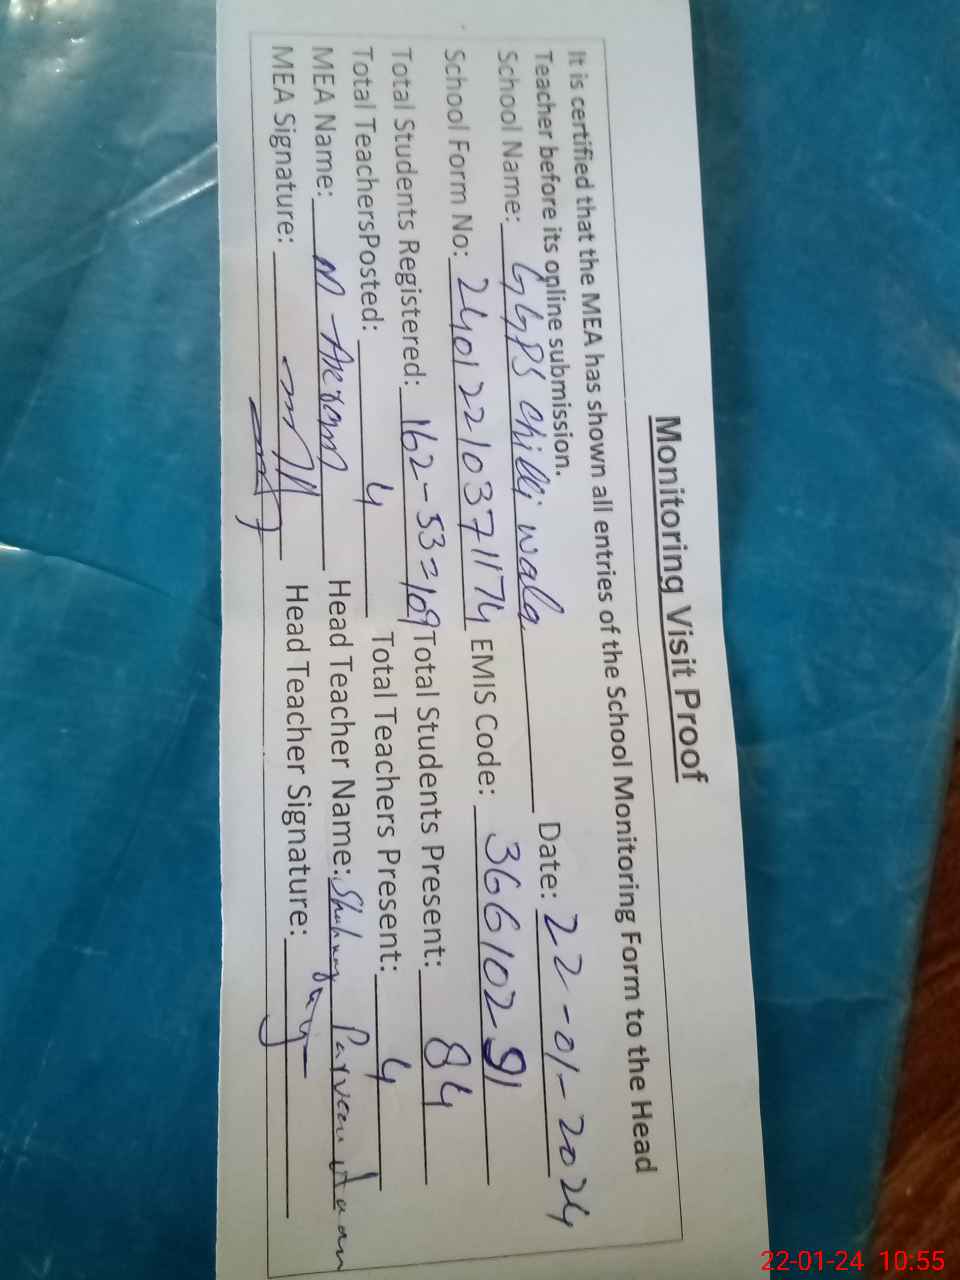 Monitoring Visit Proof
It is certified that the MEA has shown all entries of the School Monitoring Form to the Head
Teacher before its online submission.
School Name: GGPS Chilli wala Date: 22-01-2024
School Form No: 24012210371174 EMIS Code: 36610291
Total Students Registered: 162-53=109 Total Students Present: 84
Total TeachersPosted: 4 Total Teachers Present: 4
MEA Name: M Head Teacher Name: Parveen
MEA Signature: Head Teacher Signature:
22-01-24 10:55